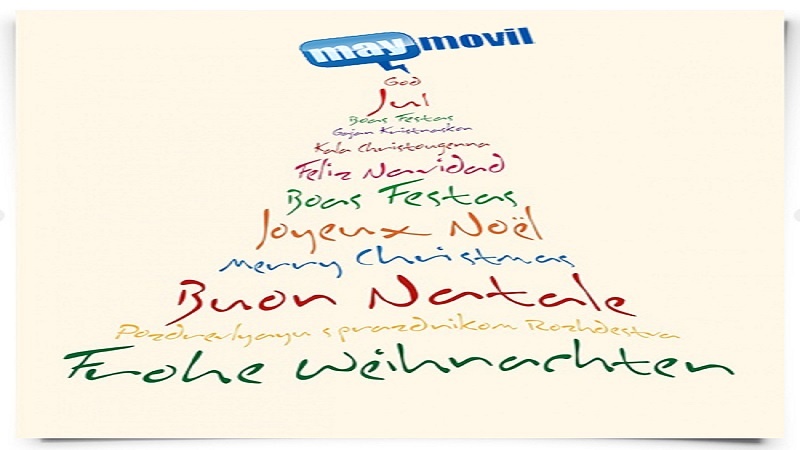 may movil
God
Jul
Boas Festas
Gojan Kristnaskon
Kala Christougenna
Feliz Navidad
Boas Festas
Joyeux Noël
Merry Christmas
Buon Natale
Pozdrevlyayu s prazdnikom Rozhdestva
Frohe Weihnachten